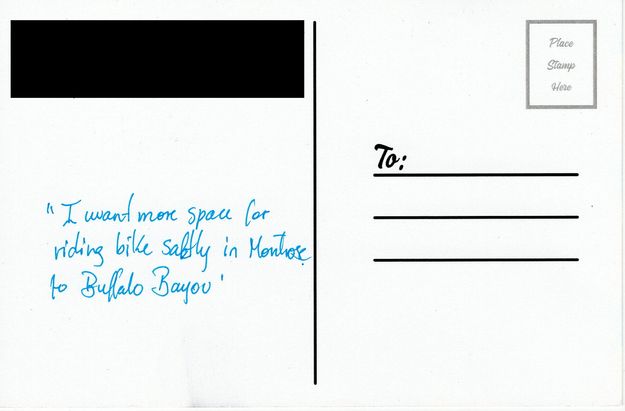 Place
Stamp
Here
To:
" I want more space for
riding bike saftly in Montrose
to Buffalo Bayou '